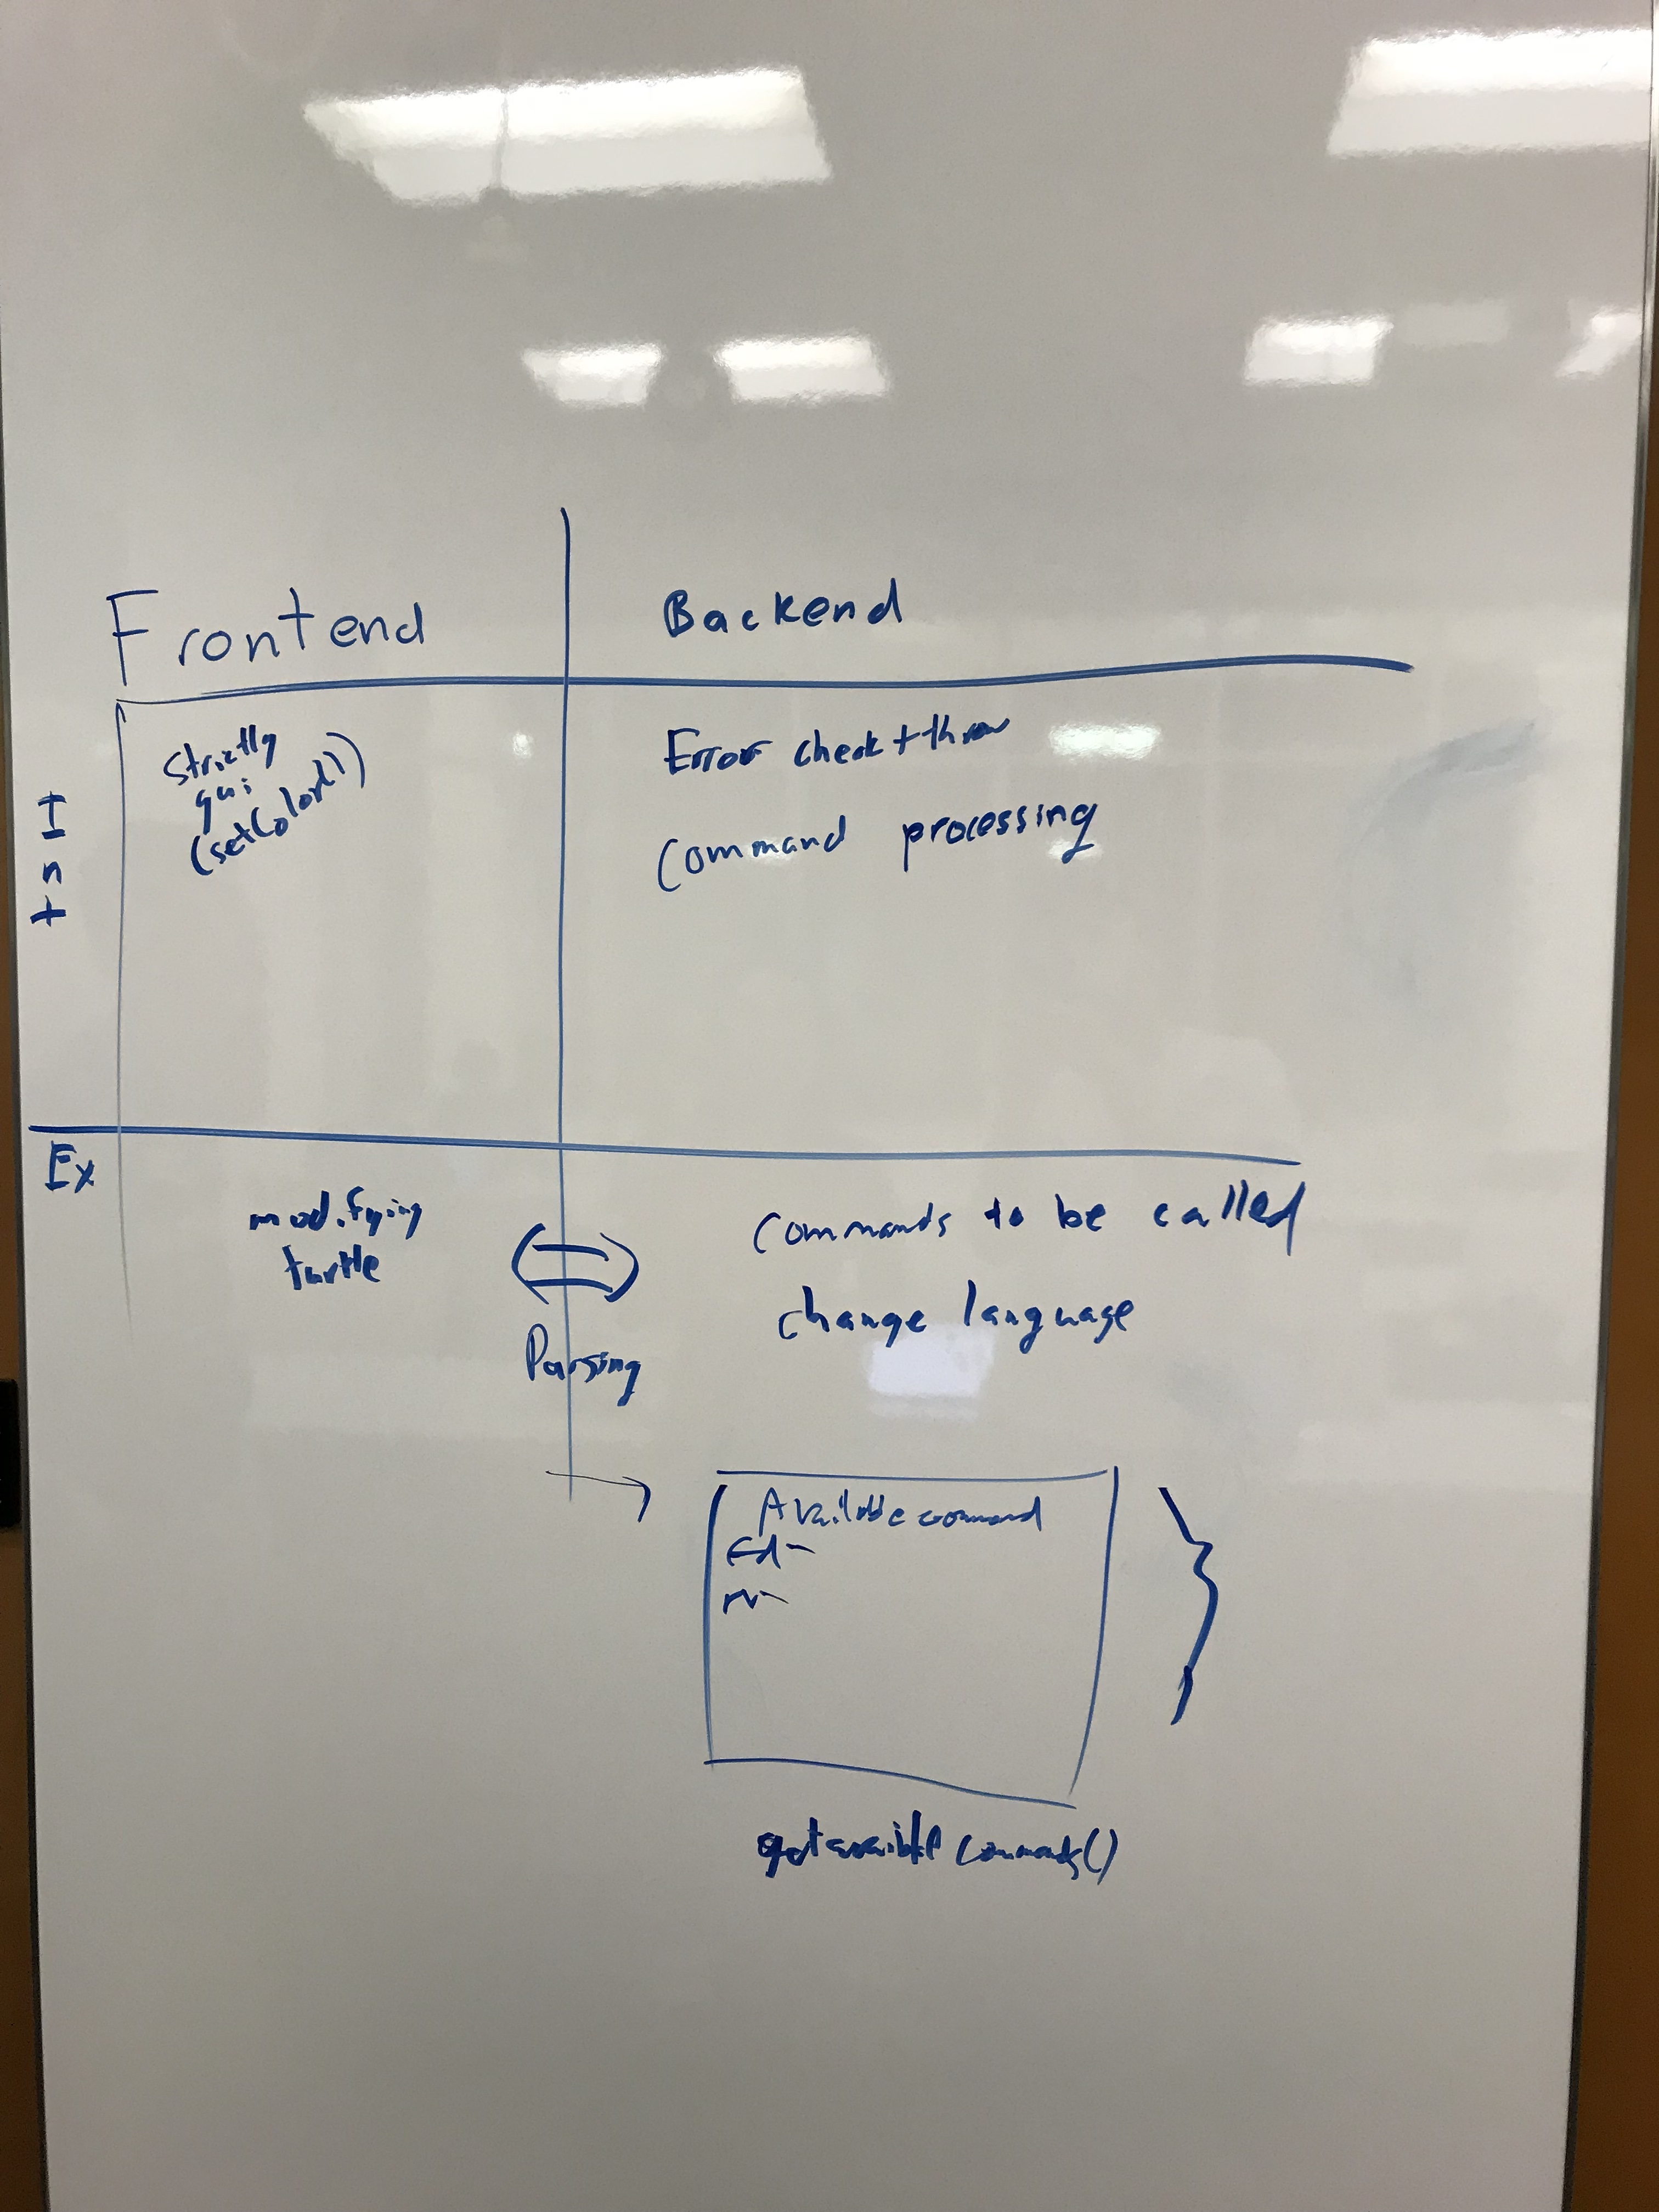 Frontend
Backend
Int
Strictly
gui
(setColor())
Error check + throw
Command processing
Ex
modifying
turtle
Parsing
Commands to be called
change language
Available command
get availble Commands()